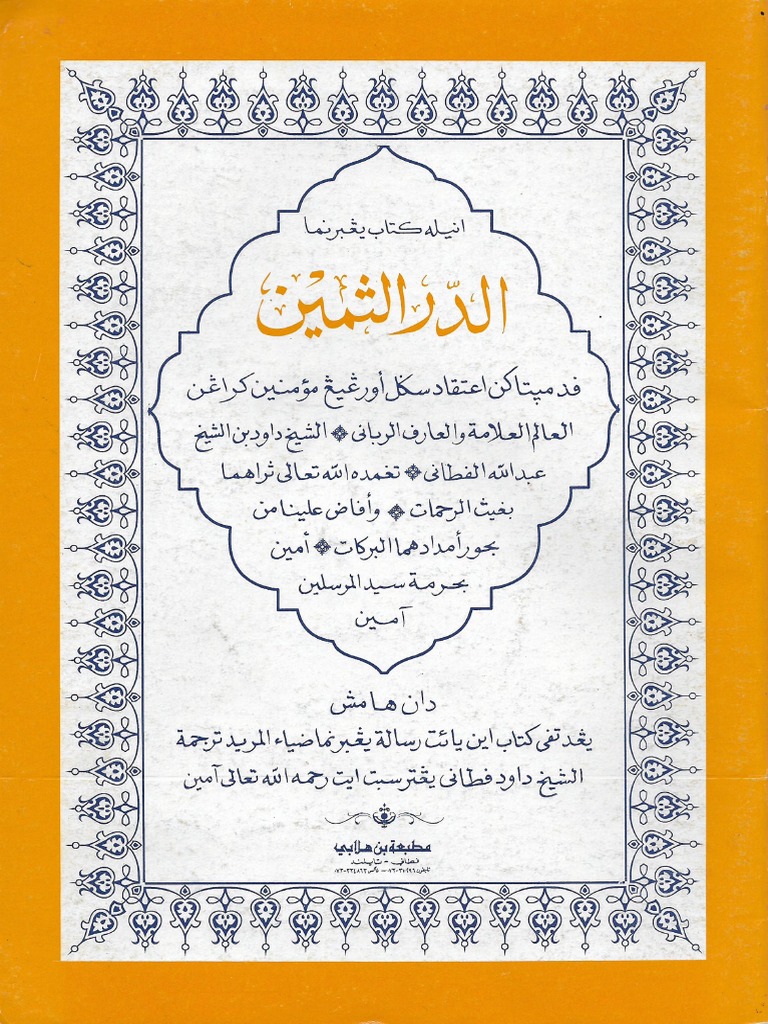 انيله كتاب يڠبرنما
الدّر الثمين
فد مپتاكن اعتقاد سكل أورڠيڠ مؤمنين كراڠن
العالم العلامة والعارف الرباني ❖ الشيخ داود بن الشيخ
عبد الله الفطاني ❖ تغمده الله تعالى ثراهما
بغيث الرحمات ❖ وأفاض علينا من
بحور أمدادهما البركات ❖ أمين
بحرمة سيد المرسلين
آمين
دان هامش
يڠد تفي كتاب اين يائت رسالة يڠبرنما ضياء المريد ترجمة
الشيخ داود فطاني يڠترسبت ايت رحمه الله تعالى آمين
مطبعة بن هلابي
فطاني - تايلند